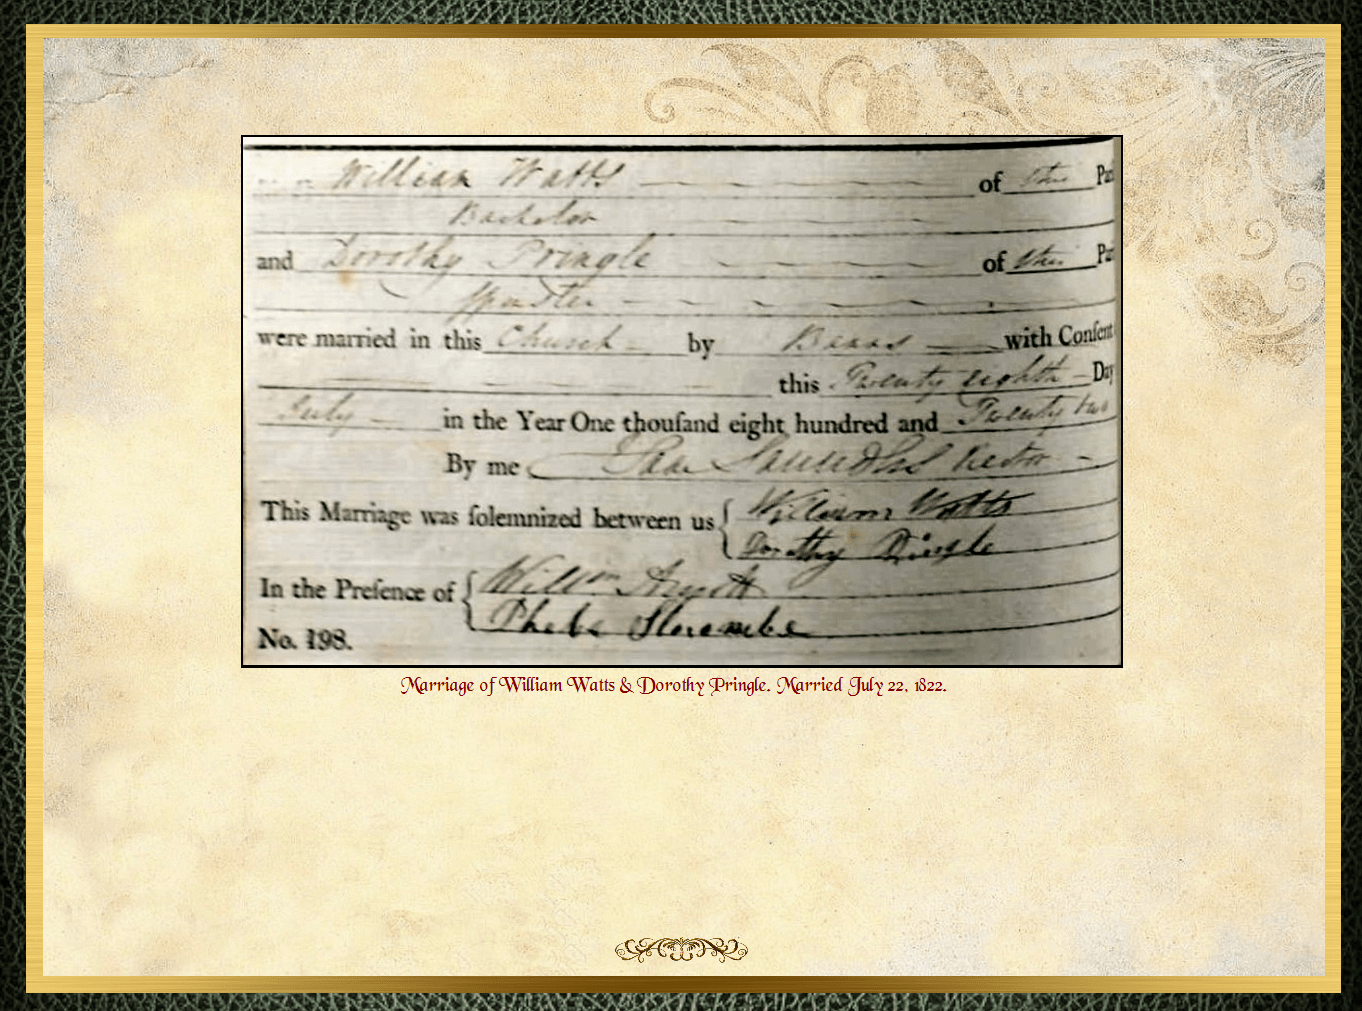 William Watts of this
Bachelor
and Dorothy Pringle of this
Spinster
were married in this Church by Banns with Conſent
this Twenty eighth Day
July in the Year One thouſand eight hundred and Twenty two
By me Saunders Rector
This Marriage was ſolemnized between us William Watts
Dorothy Pringle
In the Preſence of Willm
Phebe Slocombe
No. 198.
Marriage of William Watts & Dorothy Pringle. Married July 22, 1822.